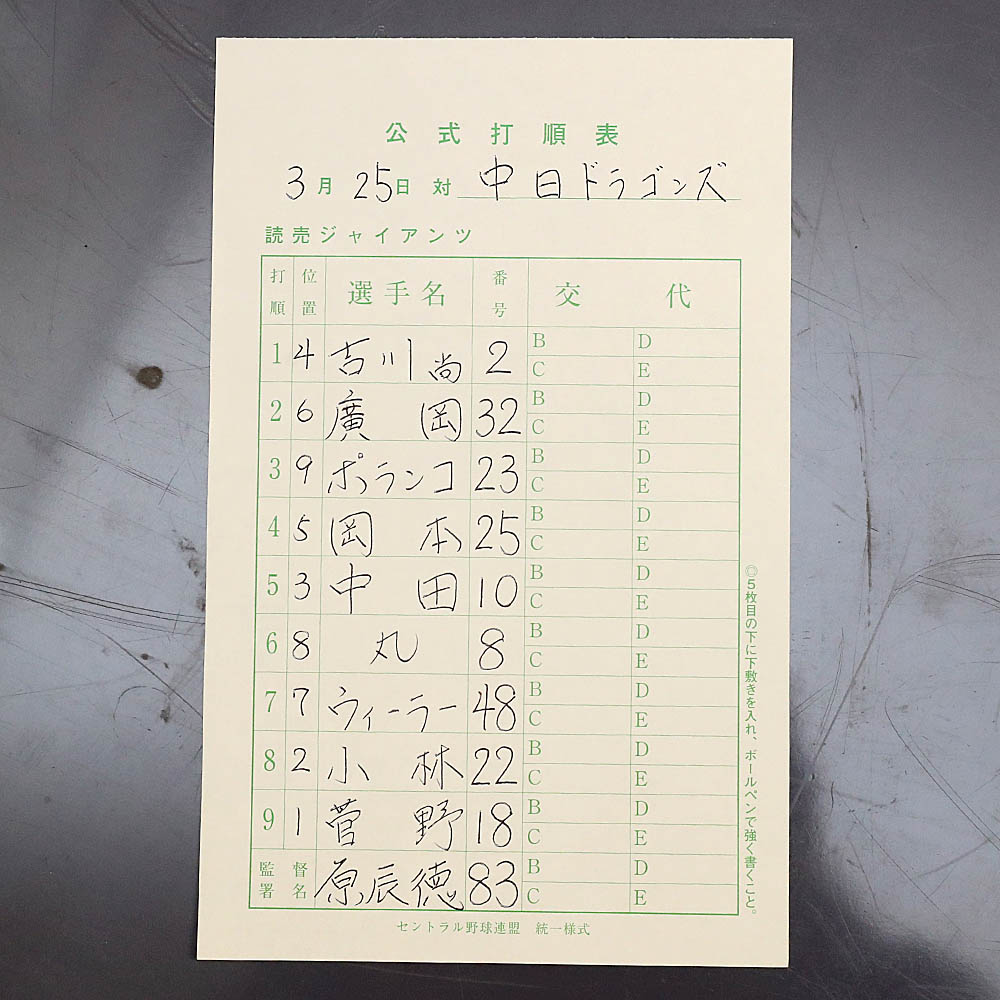 公式打順表
3月25日 対 中日ドラゴンズ
読売ジャイアンツ
打順 位置 選手名 番号 交代
1 4 吉川尚 2 B C D E
2 6 廣岡 32 B C D E
3 9 ポランコ 23 B C D E
4 5 岡本 25 B C D E
5 3 中田 10 B C D E
6 8 丸 8 B C D E
7 7 ウィーラー 48 B C D E
8 2 小林 22 B C D E
9 1 菅野 18 B C D E
監督署名 原辰徳 83 B C D E
◎5枚目の下に下敷きを入れ、ボールペンで強く書くこと。
セントラル野球連盟 統一様式